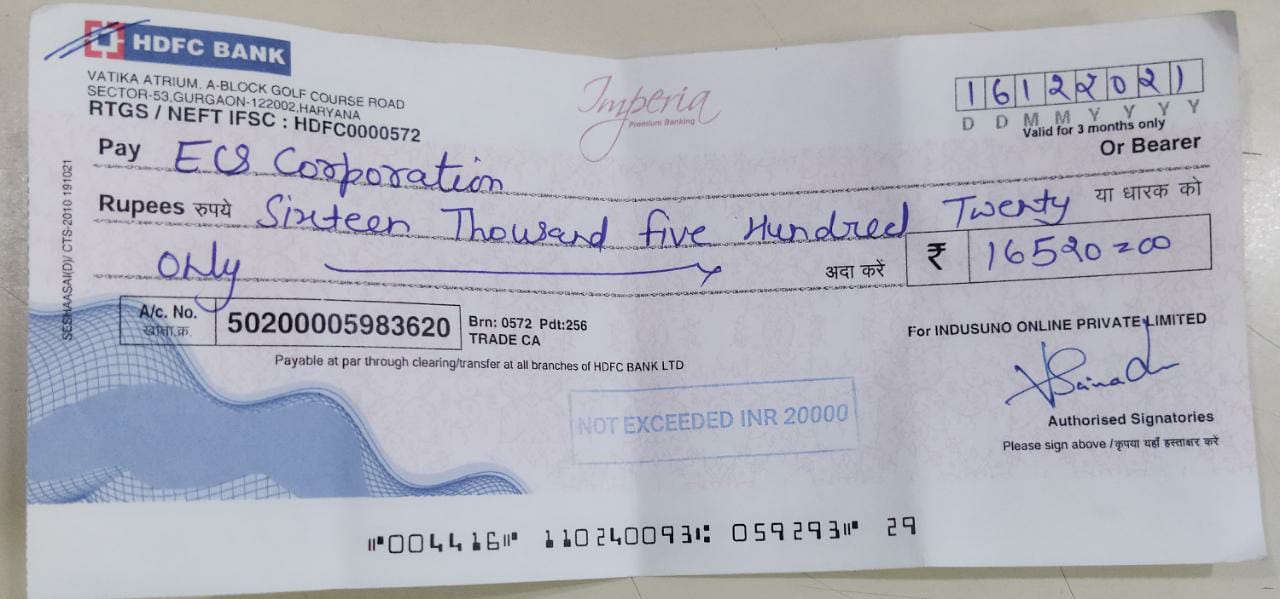 HDFC BANK
VATIKA ATRIUM, A-BLOCK GOLF COURSE ROAD
SECTOR-53,GURGAON-122002,HARYANA
RTGS / NEFT IFSC : HDFC0000572
Imperia
Premium Banking
16122021
D D M M Y Y Y Y
Valid for 3 months only
Or Bearer
Pay ECS Corporation
Rupees रुपये Sixteen Thousand five Hundred Twenty या धारक को
only अदा करें ₹ 16520=00
A/c. No.
खाता.क्र.
50200005983620
Brn: 0572 Pdt:256
TRADE CA
Payable at par through clearing/transfer at all branches of HDFC BANK LTD
For INDUSUNO ONLINE PRIVATE LIMITED
NOT EXCEEDED INR 20000
Authorised Signatories
Please sign above /कृपया यहाँ हस्ताक्षर करें
SESHAASAI(D)/ CTS-2010 191021
⑈004416⑈ 110240093⑆ 059293⑈ 29